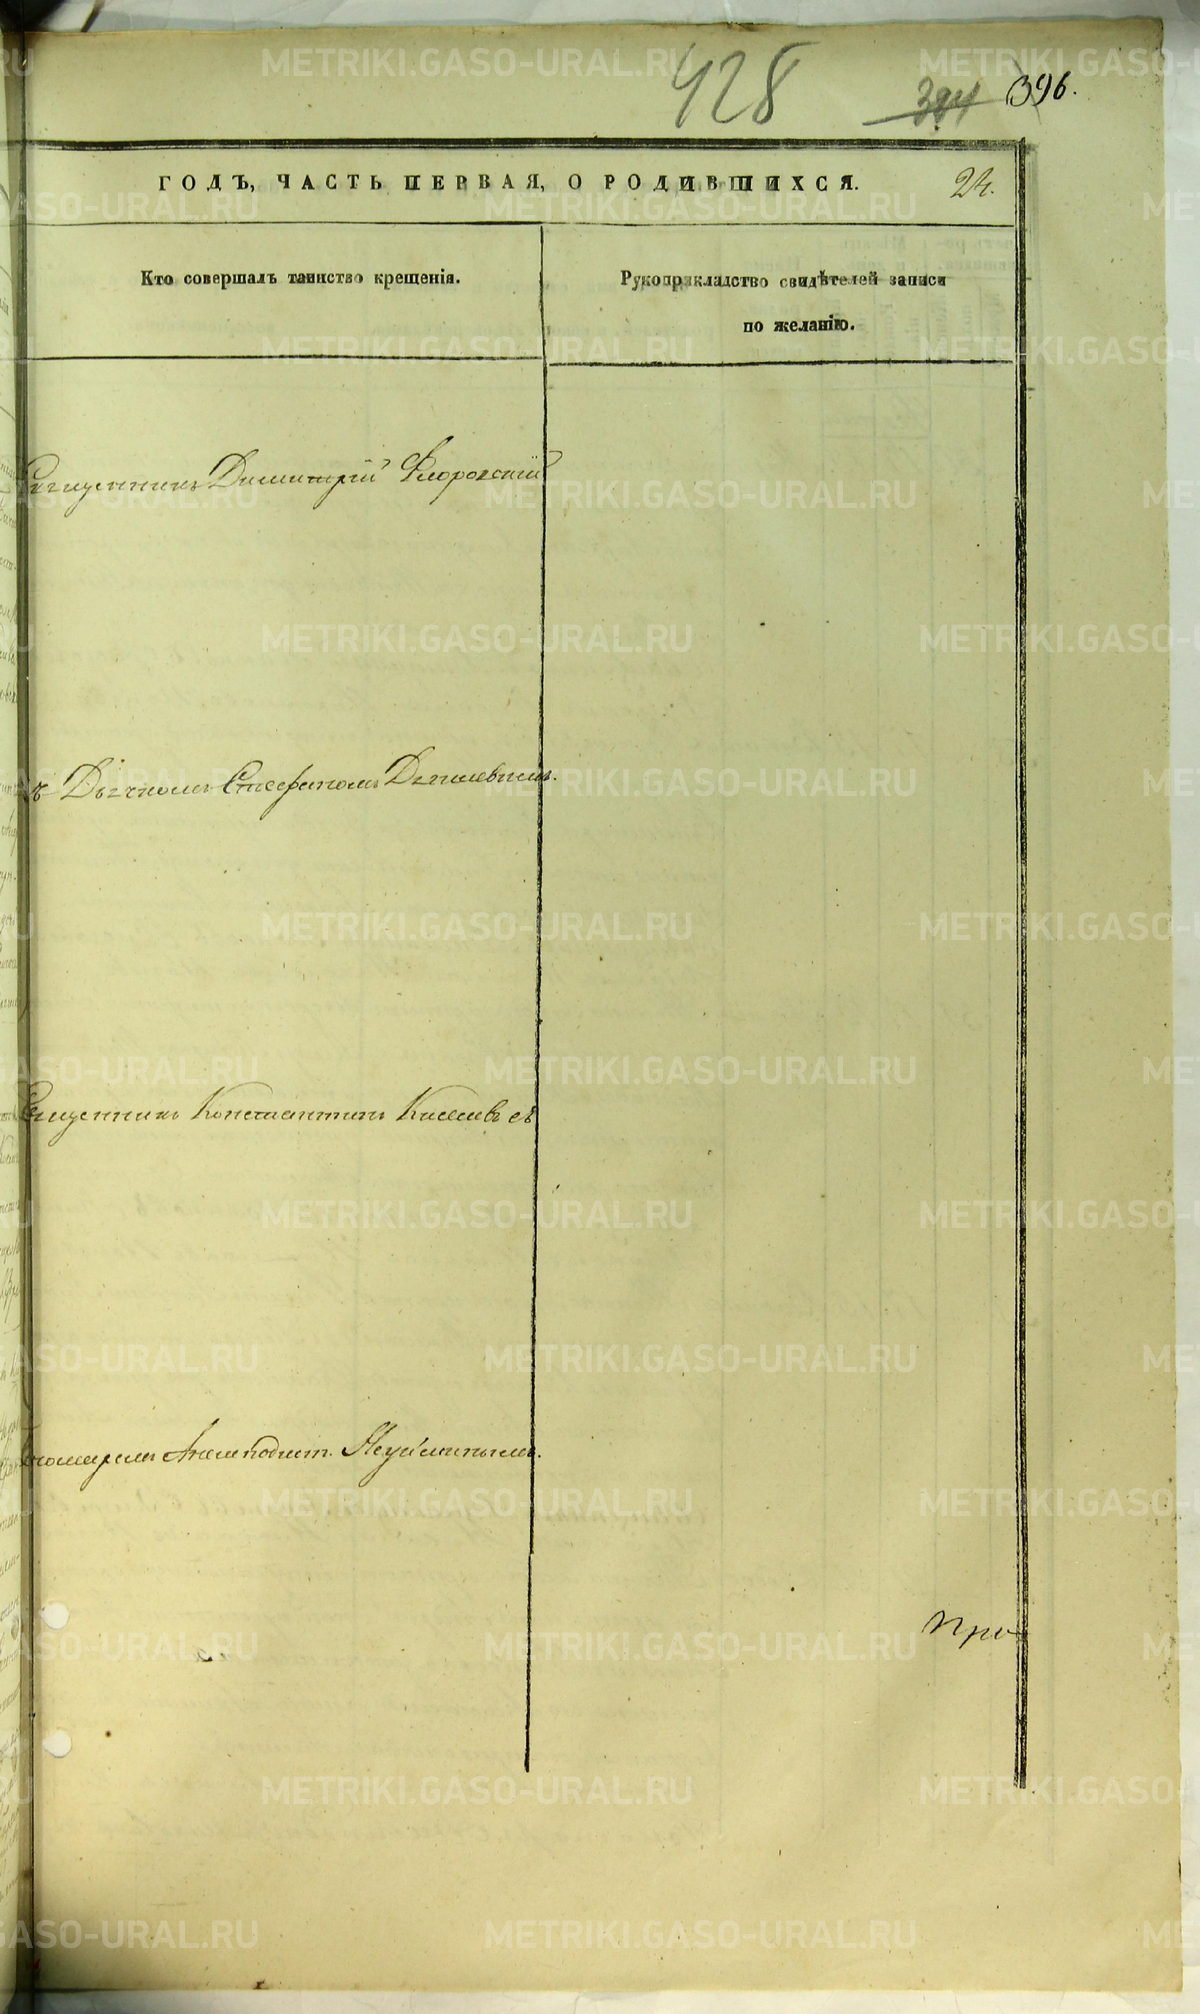 428
394 396.
ГОДЪ, ЧАСТЬ ПЕРВАЯ, О РОДИВШИХСЯ. 24.
Кто совершалъ таинство крещенія.
Рукоприкладство свидѣтелей записи
по желанію.
Священникъ Димитрій Флоровскій
съ Дьячкомъ Стефаномъ
Священникъ Константинъ Киселевъ съ
Пономаремъ Анемподист. Неуйминымъ.
При
METRIKI.GASO-URAL.RU